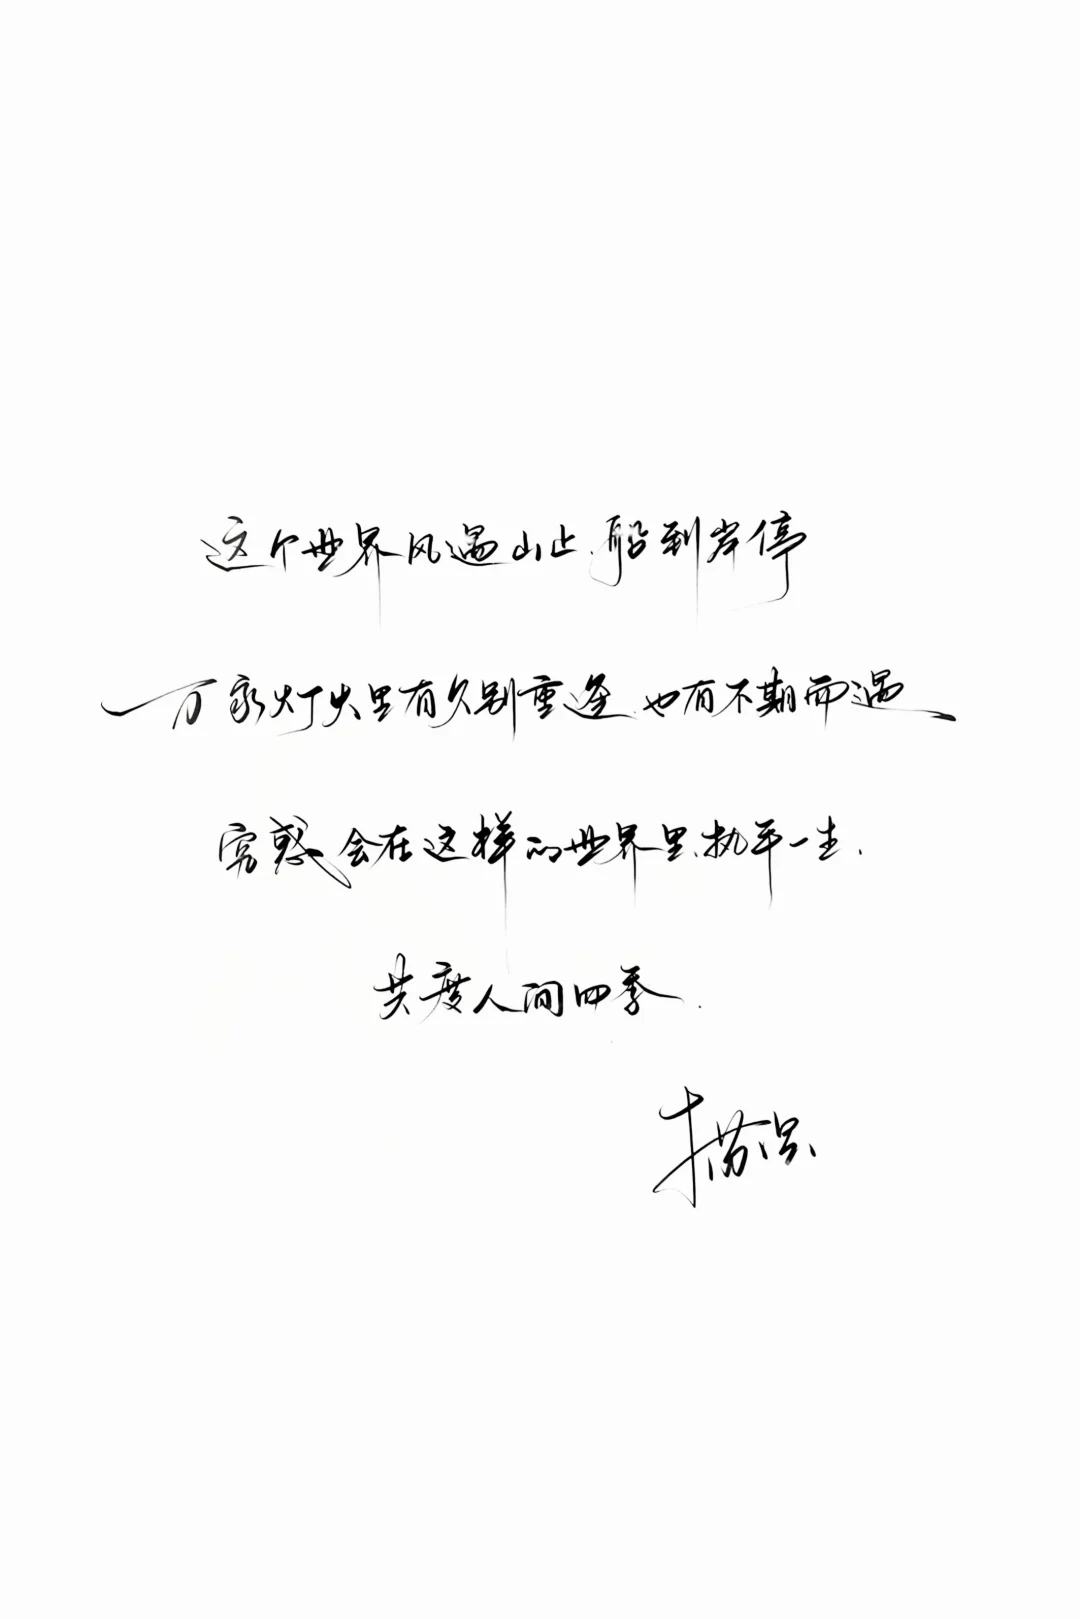 这个世界风遇山止,船到岸停
万家灯火里有久别重逢,也有不期而遇
会在这样的世界里,执手一生.
共度人间四季.